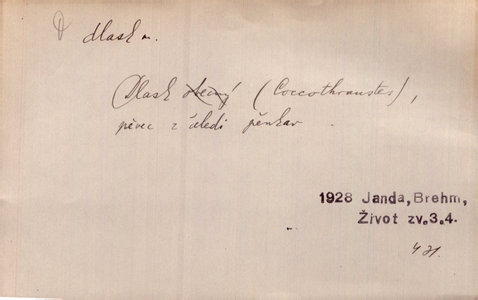 D dlask m.
Dlask obecný (Coccothraustes),
pěvec z čeledi pěnkav
1928 Janda, Brehm,
Život zv.3.4.
431.